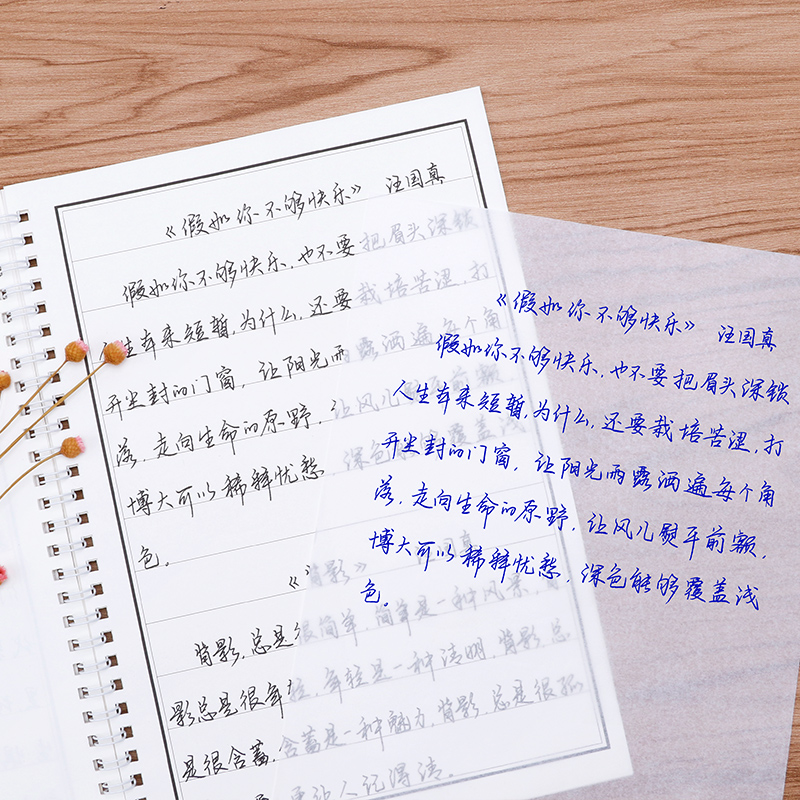 《假如你不够快乐》 汪国真
假如你不够快乐,也不要把眉头深锁
人生本来短暂,为什么,还要栽培苦涩,打
开尘封的门窗,让阳光雨露洒遍每个角
落,走向生命的原野,让风儿熨平前额,
博大可以稀释忧愁 深色能够覆盖浅
色。
《背影》 汪国真
背影,总是很简单,简单是一种风景,背
影总是很年轻,年轻是一种清明,背影总
是很含蓄,含蓄是一种魅力,背影,总是很孤
更让人记得清。
《假如你不够快乐》 汪国真
假如你不够快乐,也不要把眉头深锁
人生本来短暂,为什么,还要栽培苦涩,打
开尘封的门窗,让阳光雨露洒遍每个角
落,走向生命的原野,让风儿熨平前额,
博大可以稀释忧愁,深色能够覆盖浅
色。